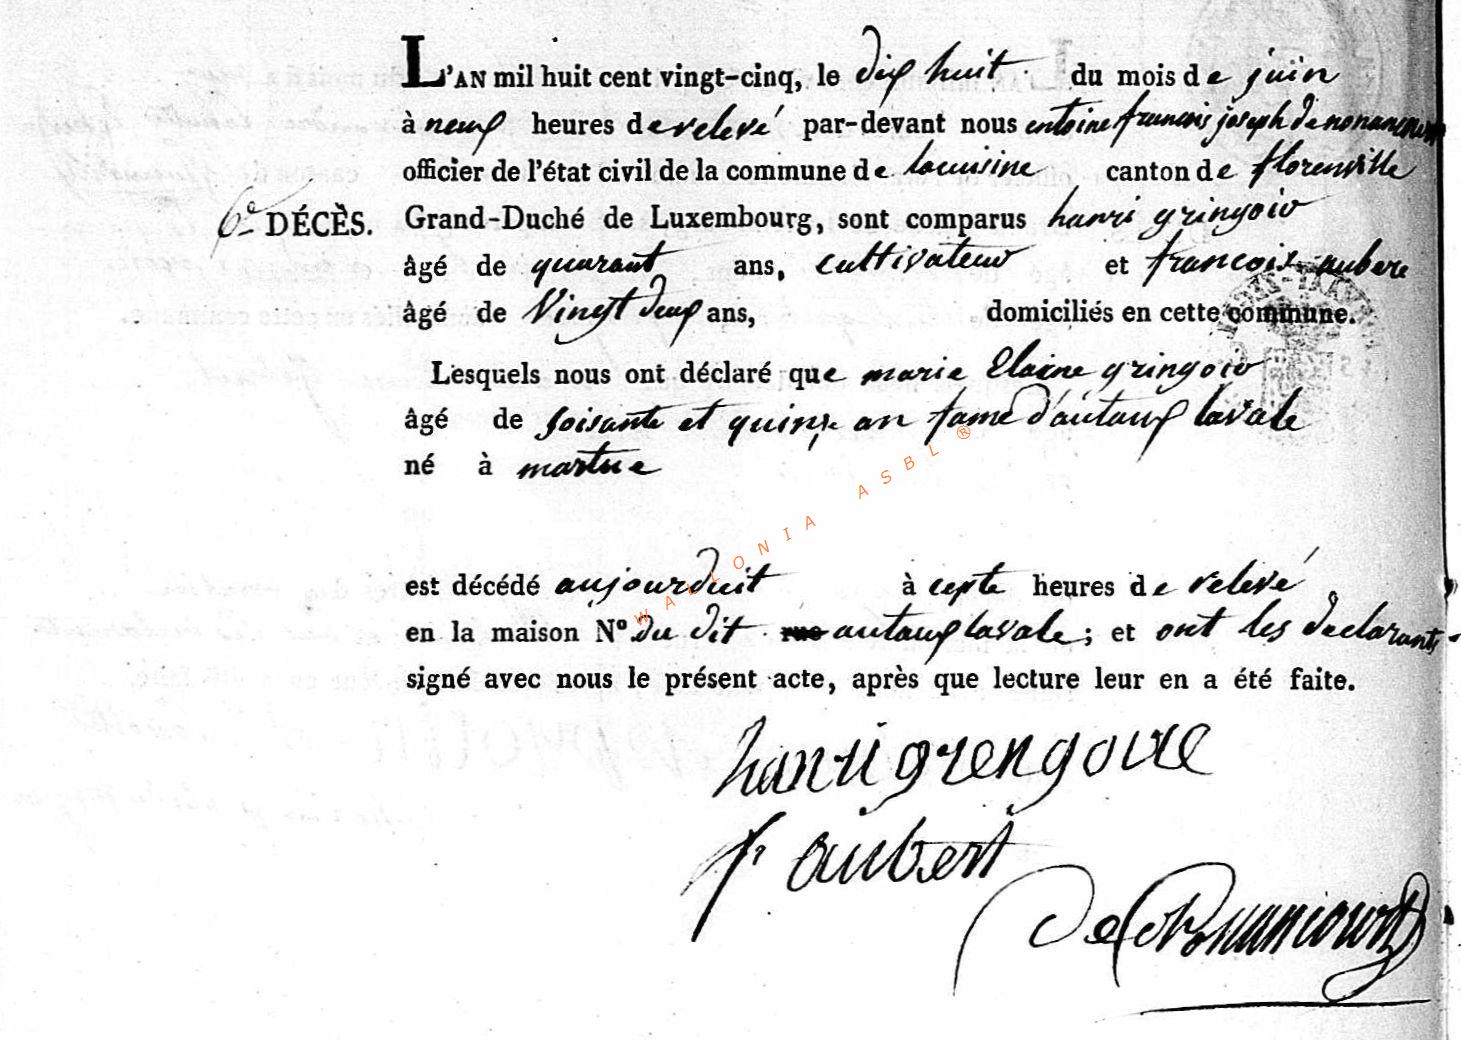 L'AN mil huit cent vingt-cinq, le dix huit du mois de juin
à neuf heures de relevé par-devant nous entoine francois joseph de nonancourt
officier de l'état civil de la commune de lacuisine canton de florenville
6e DÉCÈS. Grand-Duché de Luxembourg, sont comparus hanri gringoir
âgé de quarant ans, cultivateur et francois aubere
âgé de Vingt deux ans, domiciliés en cette commune.
Lesquels nous ont déclaré que marie Elaine gringoir
âgé de soisante et quinze an fame d'autaux lavale
né à martue
est décédé aujourduit à cepte heures de relevé
en la maison N° du dit rue autaux lavale; et ont les declarants
signé avec nous le présent acte, après que lecture leur en a été faite.
hanri grengoire
f. aubert
De Nonancourt
WALLONIA ASBL ®